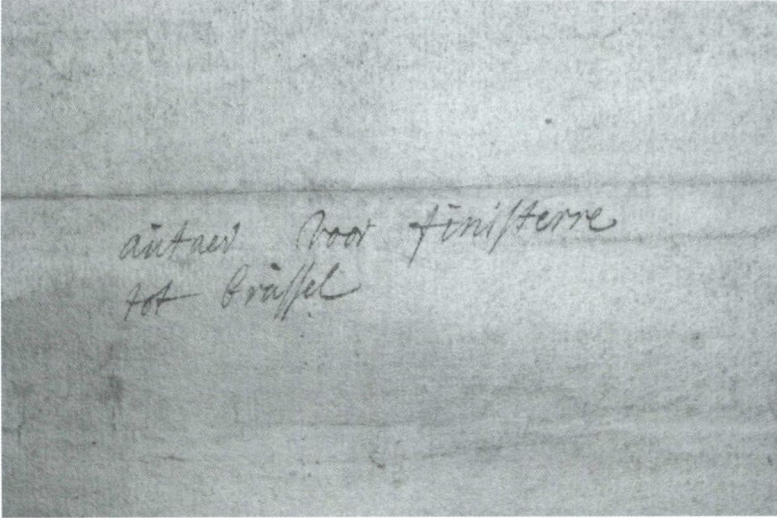 autaer voor finisterre
tot brussel